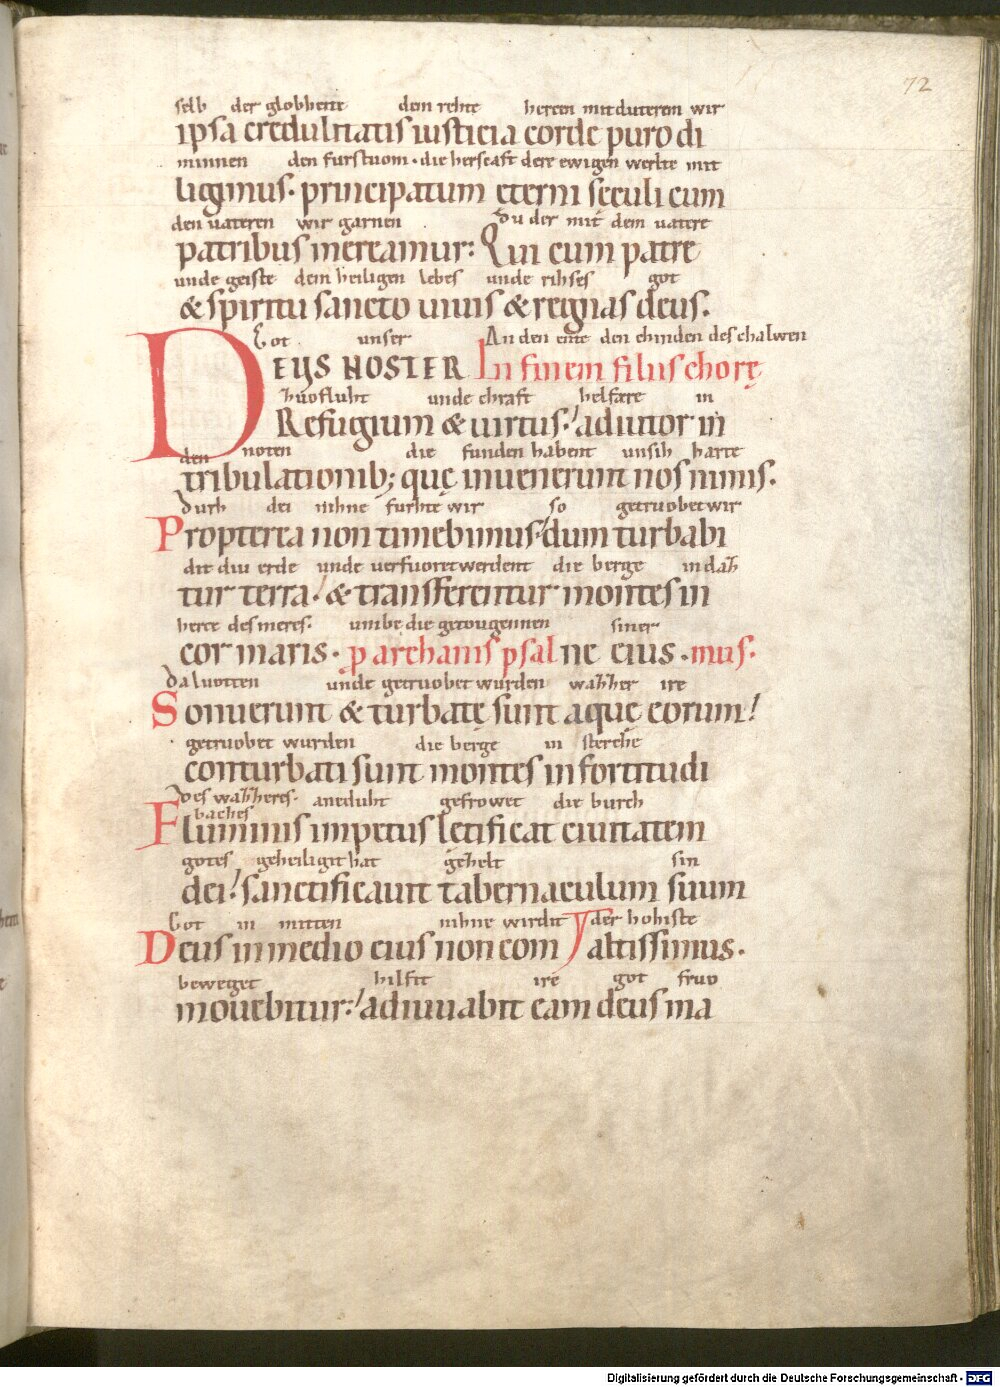 72
selb der globhent dem rehte hercen mit duterem wir
ipsa credulitatis iusticia corde puro di
minnen den furstuom · die herscaft dere ewigen werlte mit
ligimus · principatum eterni seculi cum
den uateren wir garnen Du der mit dem uatere
patribus mereamur: Qui cum patre
unde geiste dem heiligen lebes unde rihses got
& spiritu sancto uiuis & regnas deus.
Got unser An den ente den chinden des chalwen
DEUS NOSTER In finem filiis chorę
zuofluht unde chraft helfære in
Refugium & uirtus! adiutor in
den noten die funden habent unsih harte
tribulationib; quę inuenerunt nos nimis.
Durh dei nihne furhte wir so getruobet wir
Propterea non timebimus dum turbabi
die diu erde unde uerfuoret werdent die berge in daz
tur terra! & transferentur montes in
herce des meres. umbe die getougennen siner
cor maris. p archanis psal ne eius . mus.
Da luotten unde getruobet wurden wazzer ire
Sonuerunt & turbatę sunt aquę eorum!
getruobet wurden die berge in sterche
conturbati sunt montes in fortitudi
Des wazzeres . aneduht gefrowet die burch
baches
Fluminis impetus letificat ciuitatem
gotes geheiligit hat gezelt sin
dei! sanctificauit tabernaculum suum
Got in mitten nihne wirdit der hohiste
Deus in medio eius non com altissimus.
beweget hilfit ire got fruo
mouebitur:! adiuuabit eam deus ma
Digitalisierung gefördert durch die Deutsche Forschungsgemeinschaft - DFG